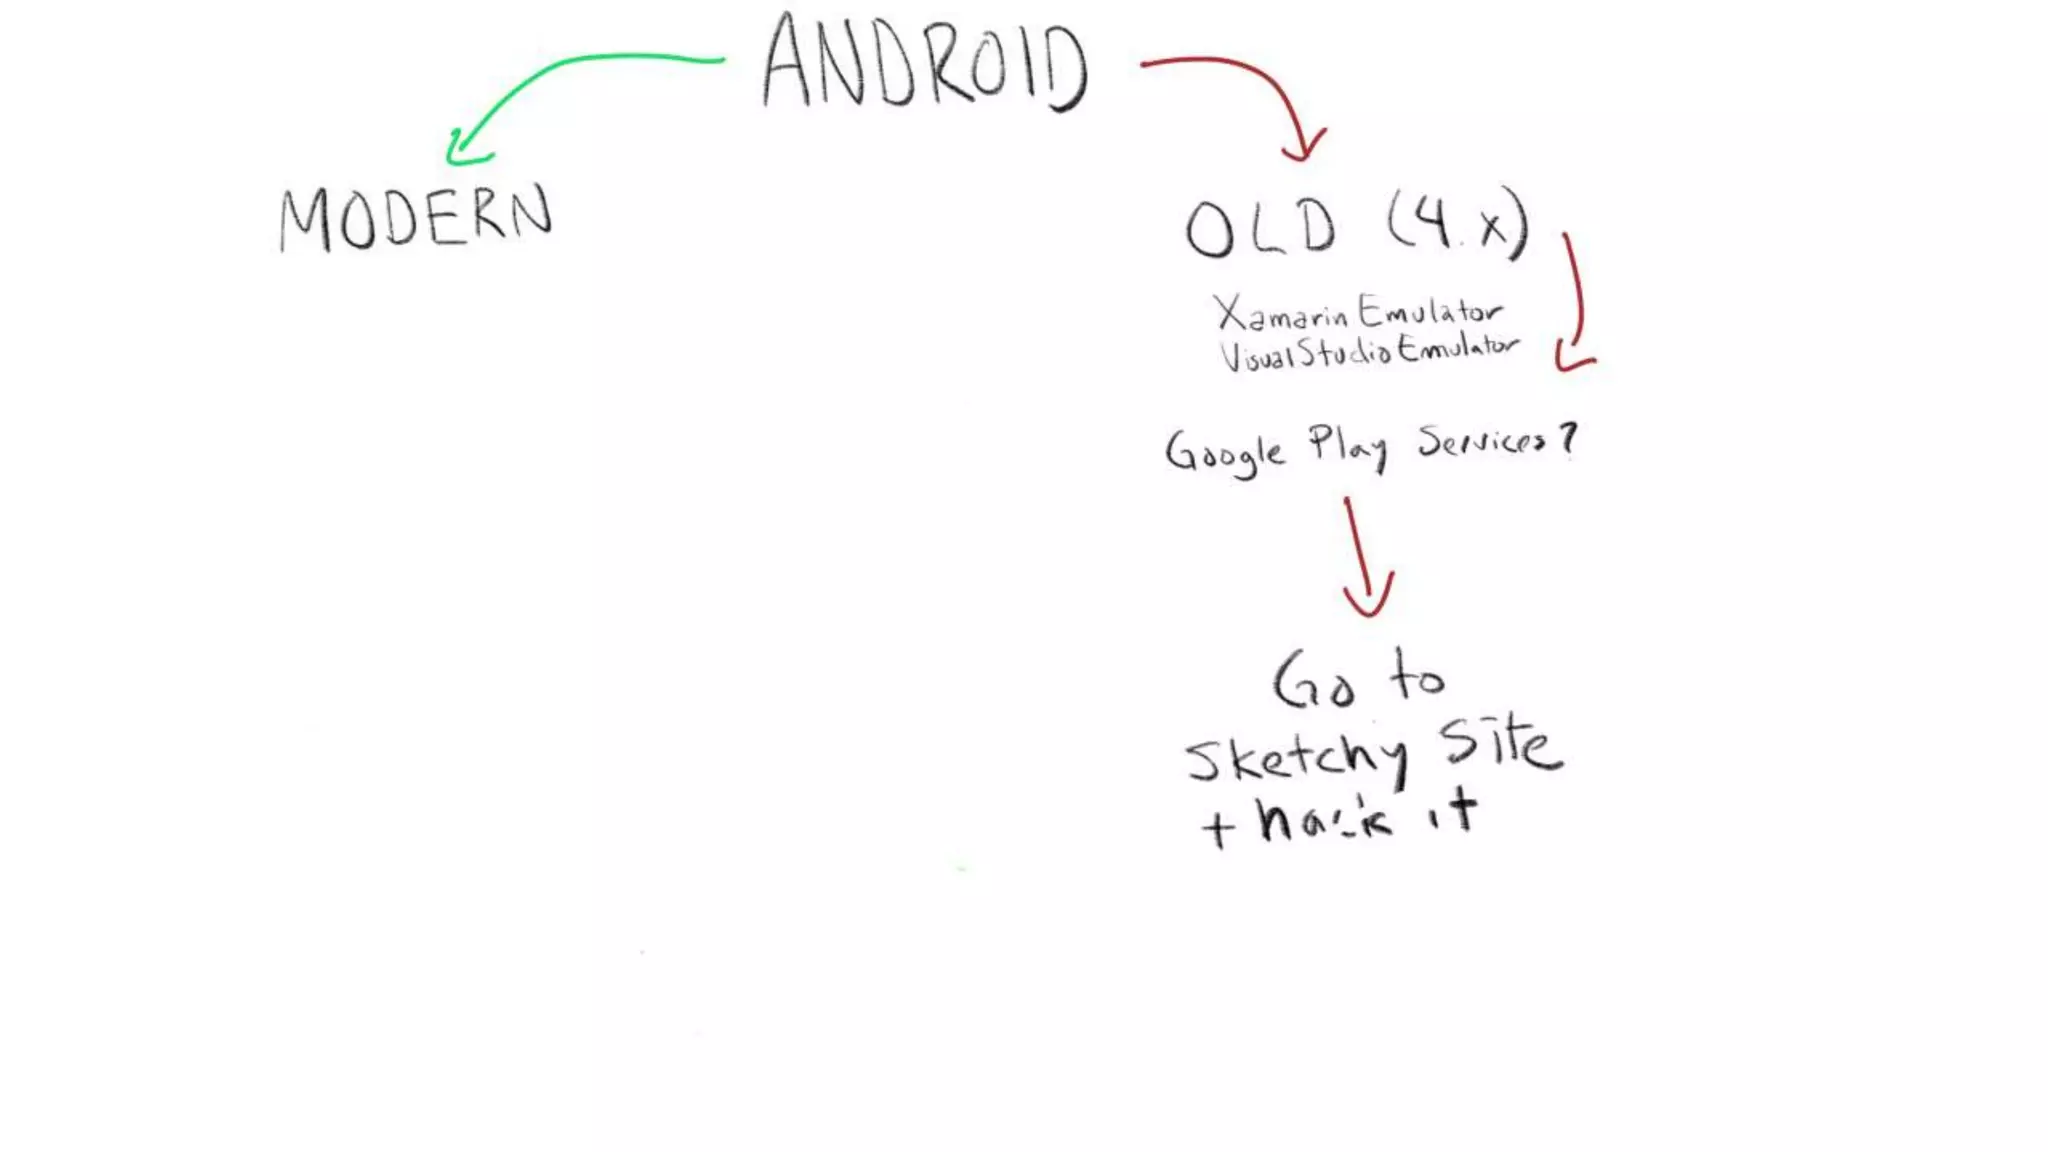 ANDROID
MODERN
OLD (4.x)
Xamarin Emulator
Visual Studio Emulator
Google Play Services?
Go to
Sketchy Site
+ hack it